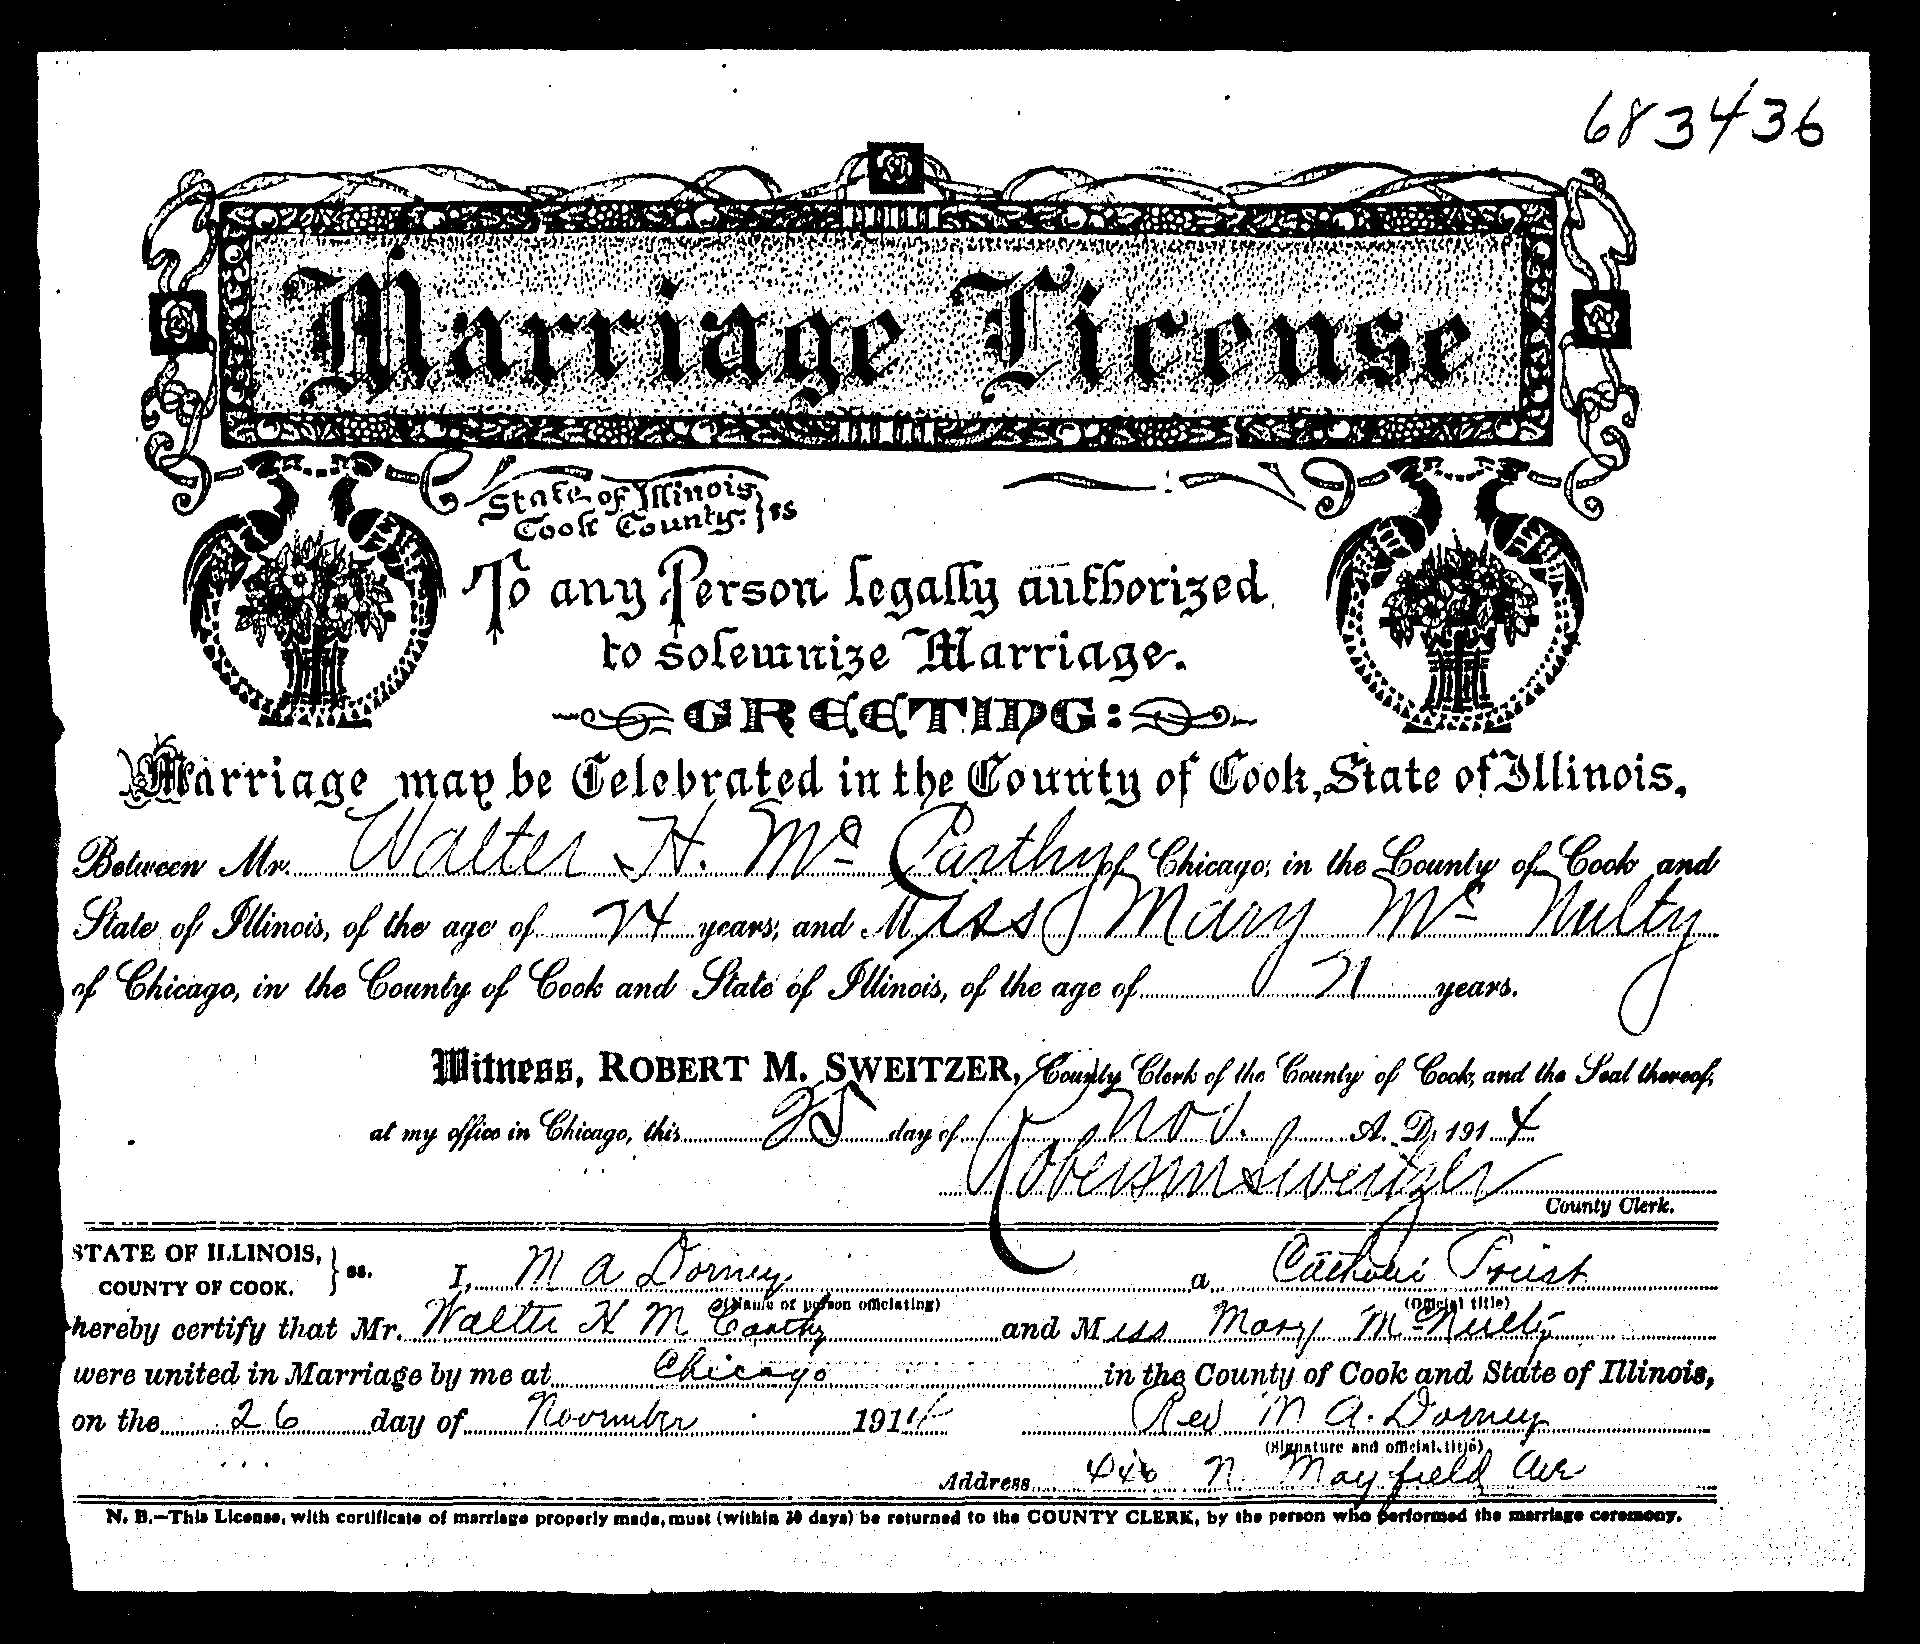 683436
Marriage License
State of Illinois
Cook County. } ss
To any Person legally authorized
to solemnize Marriage.
GREETING:
Marriage may be Celebrated in the County of Cook, State of Illinois,
Between Mr. Walter H. Mc Carthy of Chicago, in the County of Cook and
State of Illinois, of the age of 24 years, and Miss Mary Mc Nulty
of Chicago, in the County of Cook and State of Illinois, of the age of 21 years.
Witness, ROBERT M. SWEITZER, County Clerk of the County of Cook, and the Seal thereof,
at my office in Chicago, this 25 day of Nov. A. D. 1914
Robert M Sweitzer
County Clerk.
STATE OF ILLINOIS,
COUNTY OF COOK. } ss. I, M A Dorney a Catholic Priest
(Name of person officiating) (Official title)
hereby certify that Mr. Walter H Mc Carthy and Miss Mary McNulty
were united in Marriage by me at Chicago in the County of Cook and State of Illinois,
on the 26 day of November 1914 Rev M A. Dorney
(Signature and official title)
Address N Mayfield Ave
N. B.—This License, with certificate of marriage properly made, must (within 30 days) be returned to the COUNTY CLERK, by the person who performed the marriage ceremony.